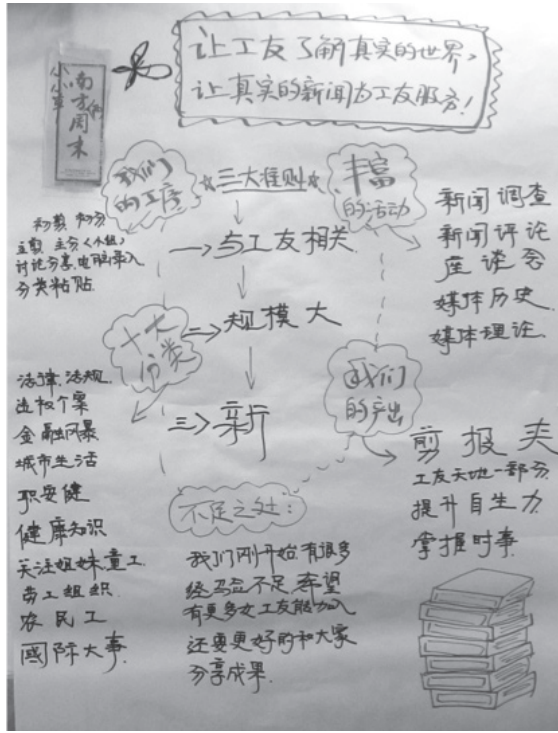 让工友了解真实的世界,
让真实的新闻为工友服务!
南方周末
我们
的工序
初剪 初分
主剪 主分〈小组〉
讨论分享,电脑录入
分类粘贴
☆三大准则☆
一→与工友相关
二→规模大
三→新
丰富
的活动
新闻调查
新闻评论
座谈会
媒体历史
媒体理论
十大
分类
法律,法规
维权个案
金融风暴
城市生活
职安健
健康知识
关注姐妹,童工
劳工组织
农民工
國际大事
我们
的产出
剪报夹
工友天地一部分
提升自生力
掌握时事
不足之处:
我们刚开始有很多
经验不足,希望
有更多女工友能加入
还要更好的和大家
分享成果.